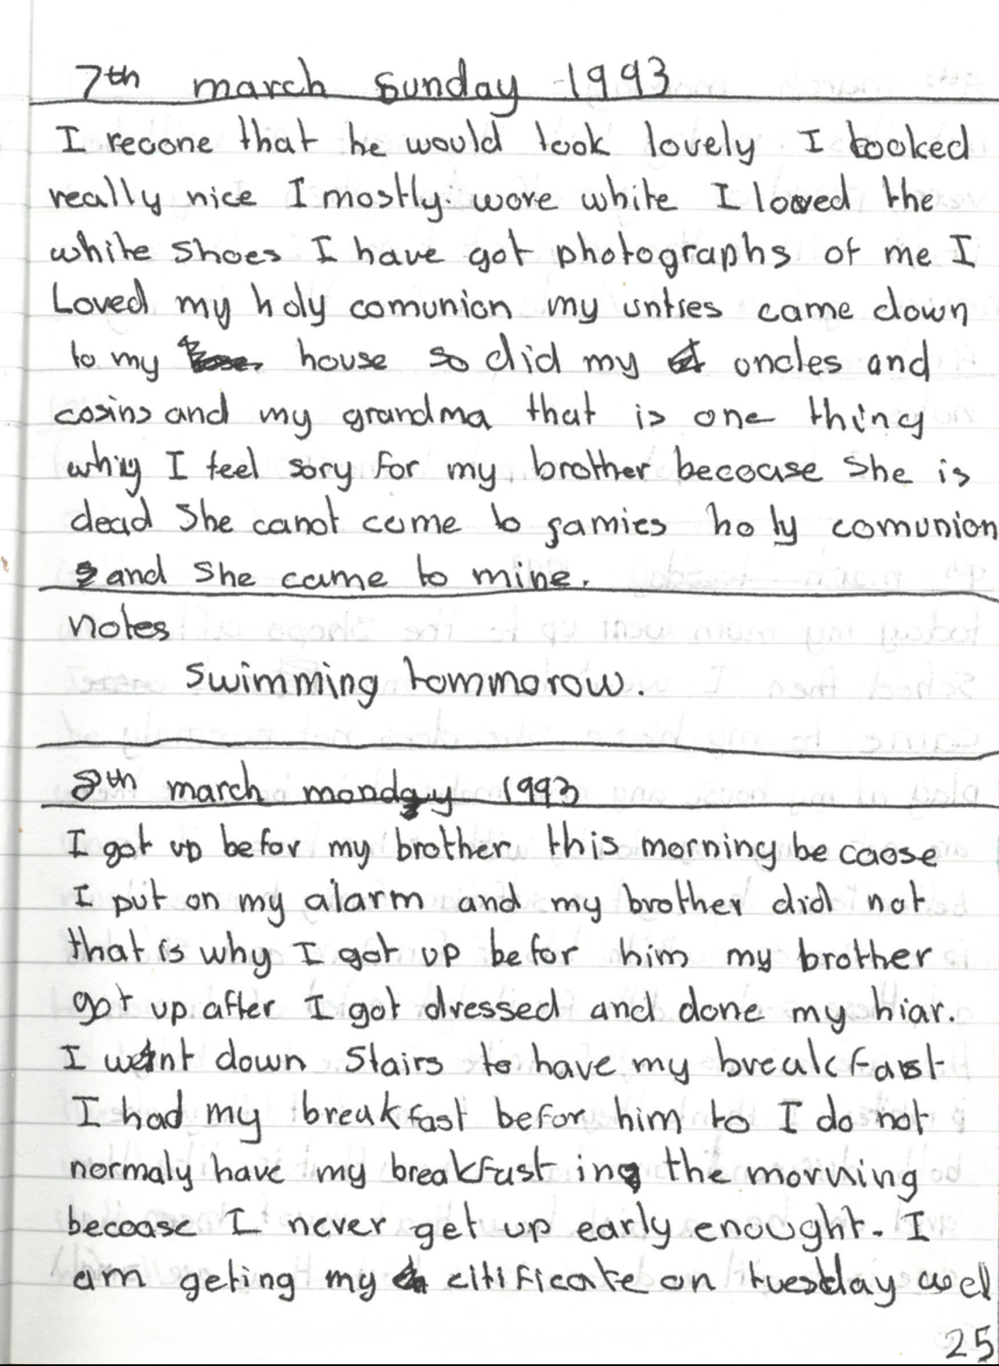 7th march sunday 1993
I recone that he would look lovely I looked
really nice I mostly wore white I loved the
white shoes I have got photographs of me I
Loved my holy comunion my unties came down
to my house so did my oncles and
cosins and my grandma that is one thing
whiy I feel sory for my brother becouse she is
dead She canot come to jamies holy comunion
and She came to mine.
notes
swimming tommorow.
8th march monday 1993
I got up befor my brother this morning becaose
I put on my alarm and my brother did not
that is why I got up befor him my brother
got up after I got dressed and done my hiar.
I went down Stairs to have my breakfast
I had my breakfast befor him to I do not
normaly have my breakfast in the morning
becoase I never get up early enought. I
am geting my citificate on tuesday
25